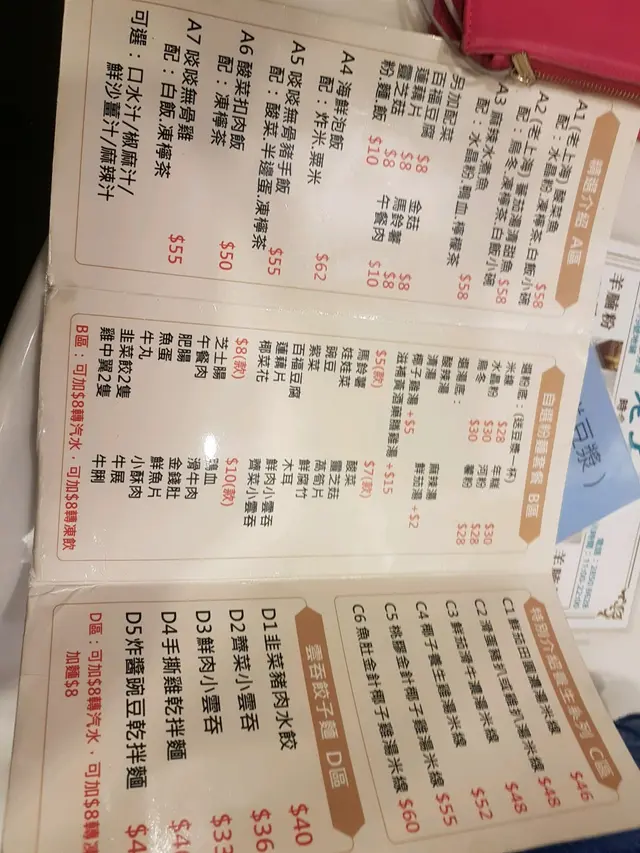 精選介紹 A區
A1 (老上海) 酸菜魚 $58
配：水晶粉.凍檸茶.白飯小碗
A2 (老上海) 蕃茄湯清甜魚 $58
配：烏冬.凍檸茶.白飯小碗
A3 麻辣水煮魚 $58
配：水晶粉.鴨血.檸檬茶
另加配菜
百福豆腐 $8 金菇 $8
蓮藕片 $8 馬鈴薯 $8
靈芝菇 $8 午餐肉 $10
粉.麵.飯 $10
A4 海鮮泡飯 $62
配：炸米.粟米
A5 啖啖無骨豬手飯 $55
配：酸菜.半邊蛋.凍檸茶
A6 酸菜扣肉飯 $50
配：凍檸茶
A7 啖啖無骨雞 $55
配：白飯.凍檸茶
可選：口水汁/椒麻汁/
鮮沙薑汁/麻辣汁
自選粉麵套餐 B區
選粉底：(送豆漿一杯)
米線 $28 年糕 $30
水晶粉 $30 河粉 $28
烏冬 $30 薯粉 $28
選湯底：
酸辣湯 麻辣湯
清湯 鮮茄湯 +$2
椰子雞湯 +$5
滋補黃酒藥膳雞湯 +$15
$5(款) $7(款)
馬鈴薯 酸菜
娃娃菜 靈芝菇
豌豆 萵筍片
紫菜 鮮腐竹
百福豆腐 木耳
蓮藕片 鮮肉小雲吞
椰菜花 薺菜小雲吞
$8(款) $10(款)
芝士腸 鴨血
午餐肉 滑牛肉
肥腸 金錢肚
魚蛋 鮮魚片
牛丸 小酥肉
韮菜餃2隻 牛展
雞中翼2隻 牛脷
B區：可加$8轉汽水．可加$8轉凍飲
特別介紹養生系列 C區
C1 鮮茄田園濃湯米線 $46
C2 滑蛋豬扒或雞扒湯米線 $48
C3 鮮茄滑牛濃湯米線 $48
C4 椰子養生雞湯米線 $52
C5 桃膠金針椰子雞湯米線 $55
C6 魚肚金針椰子雞湯米線 $60
雲吞餃子麵 D區
D1韭菜豬肉水餃 $40
D2薺菜小雲吞 $36
D3鮮肉小雲吞 $33
D4手撕雞乾拌麵
D5炸醬碗豆乾拌麵
D區：可加$8轉汽水．可加$8轉凍
加麵$8
羊腩粉
豆漿）